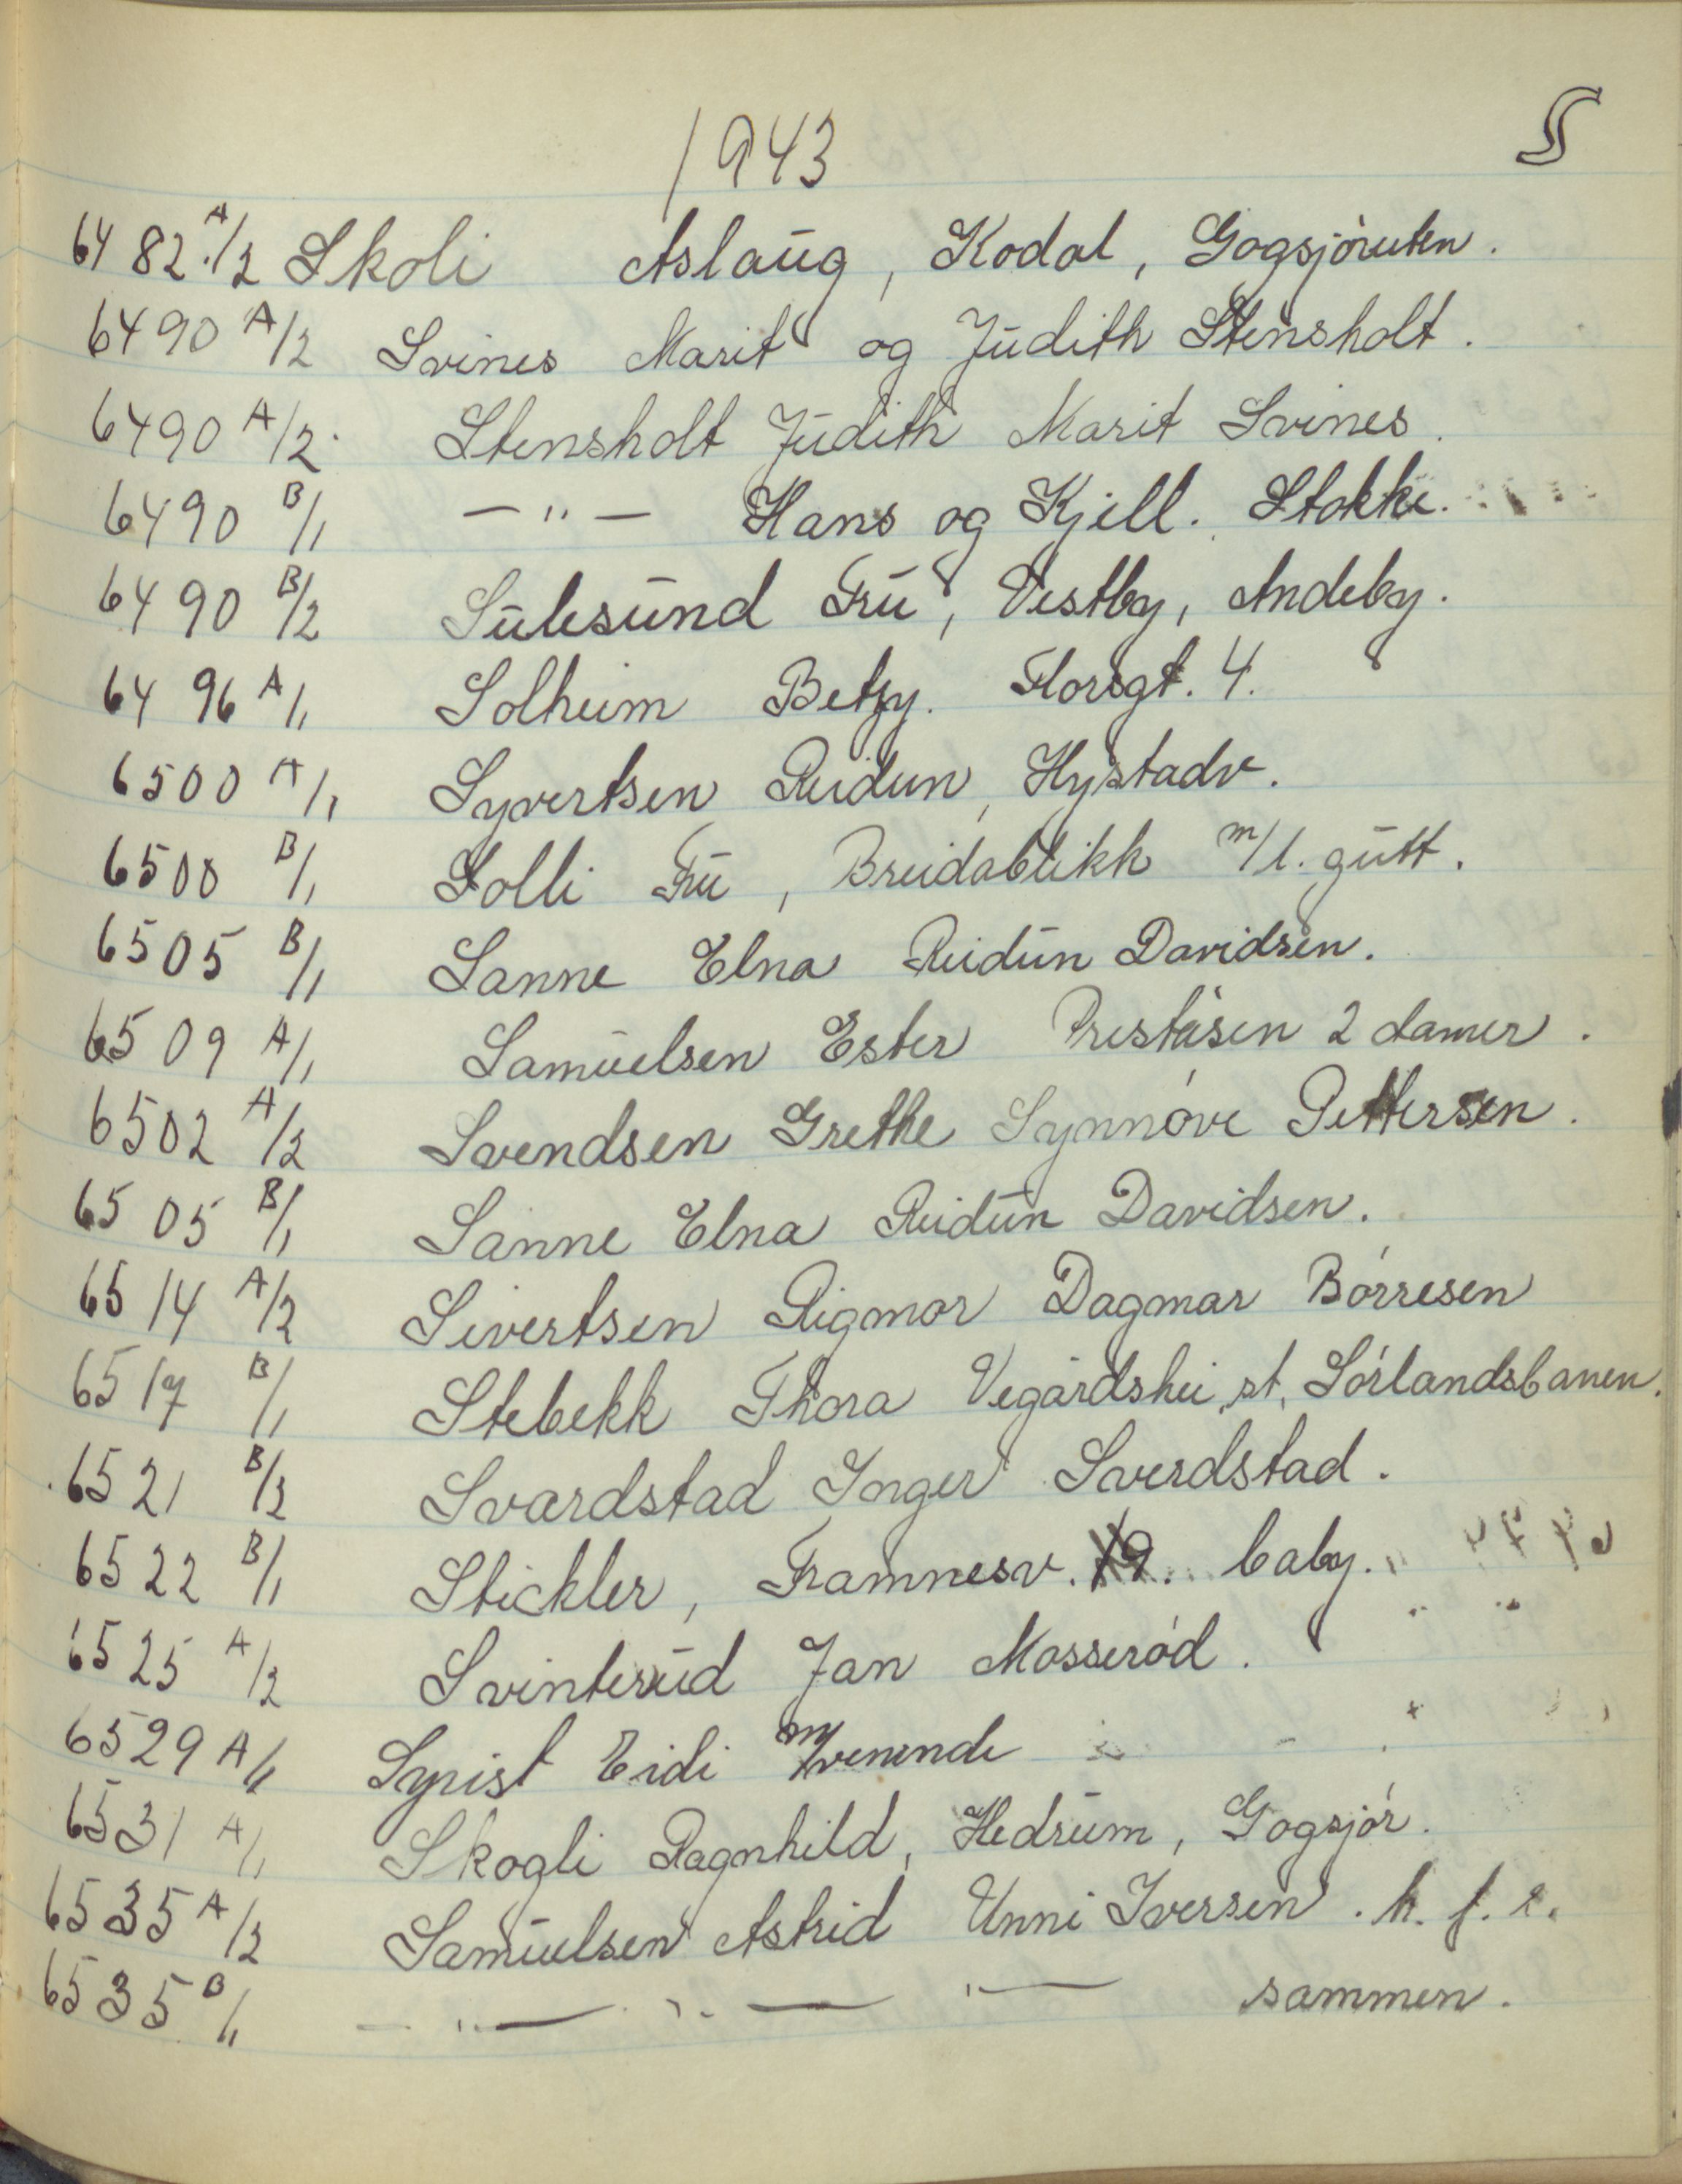 S
1943
6482 A/2 Skoli Aslaug, Kodal, Gogsjøruten.
6490 A/2 Svines Marit og Judith Stensholt.
6490 A/2. Stensholt Judith Marit Svines.
6490 B/1 - " - Hans og Kjell. Stokke.
6490 B/2 Sulesund Fru, Vestby, Andeby.
6496 A/1 Solheim Betzy. Florsgt. 4.
6500 A/1 Syvertsen Reidun, Hystadv.
6500 B/1 Solli Fru, Breidablikk m/l. gutt.
6505 B/1 Sanne Elna Reidun Davidsen.
6509 A/1 Samuelsen Ester Preståsen 2 damer.
6502 A/2 Svendsen Grethe Synnøve Pettersen.
6505 B/1 Sanne Elna Reidun Davidsen.
6514 A/2 Sivertsen Rigmor Dagmar Børresen
6517 B/1 Stebekk Thora Vegårdshei st, Sørlandsbanen.
6521 B/2 Svardstad Inger Sverdstad.
6522 B/1 Stickler, Framnesv. 19. baby.
6525 A/2 Svinterud Jan Mosserød.
6529 A/1 Syrist Eidi m/veninde
6531 A/1 Skogli Ragnhild, Hedrum, Gogsjør.
6535 A/2 Samuelsen Astrid Unni Iversen. h. f. e.
6535 B/1 - " - " - " - sammen.